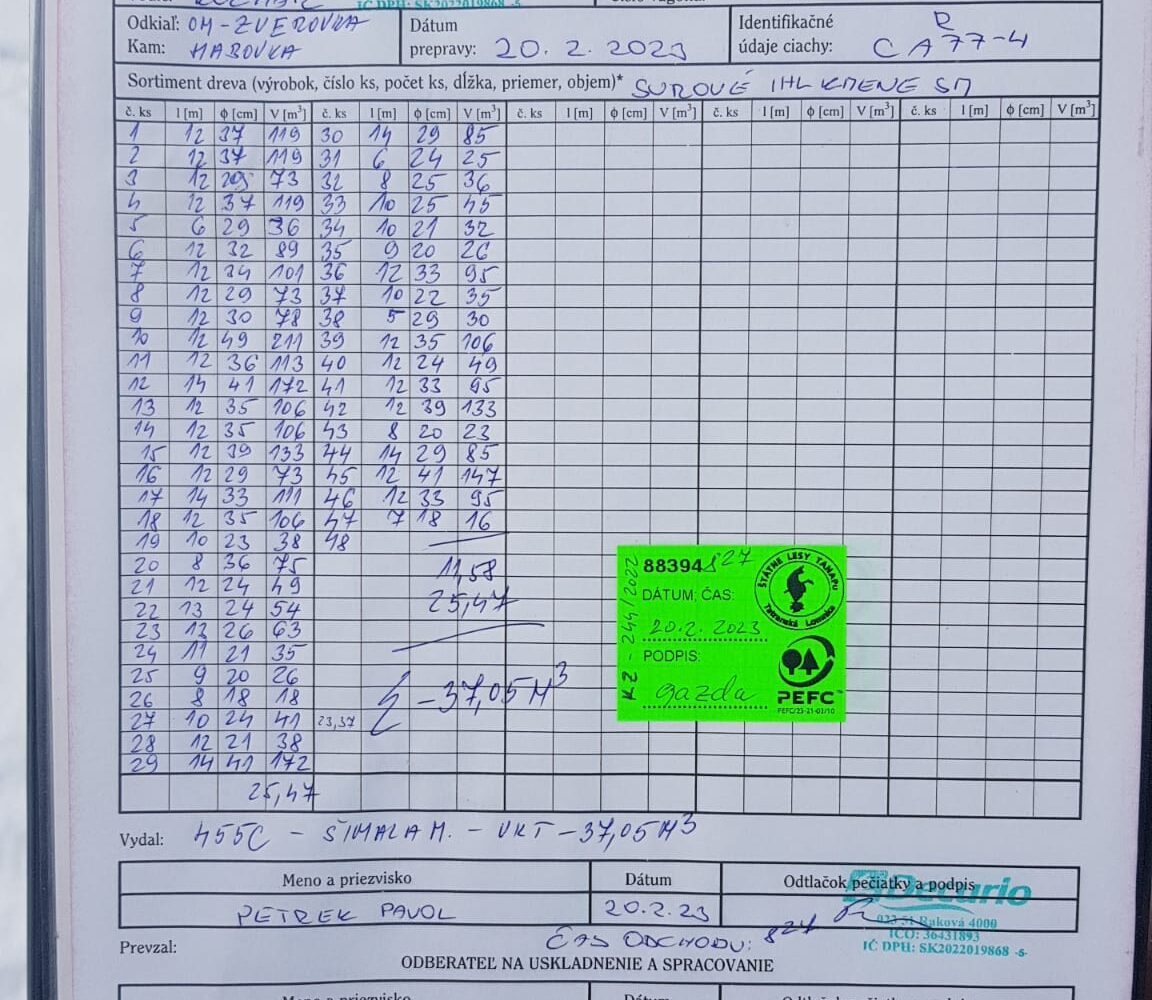 IČ DPH: SK2022019868 -5-
Odkiaľ: OM-ZVEROVKA
Kam: HABOVKA
Dátum
prepravy: 20. 2. 2023
Identifikačné R
údaje ciachy: CA 77-4
Sortiment dreva (výrobok, číslo ks, počet ks, dĺžka, priemer, objem)* SUROVÉ IHL KMENE SM
č. ks l [m] ϕ [cm] V [m³] č. ks l [m] ϕ [cm] V [m³] č. ks l [m] ϕ [cm] V [m³] č. ks l [m] ϕ [cm] V [m³] č. ks l [m] ϕ [cm] V [m³]
1 12 37 119 30 14 29 85
2 12 37 119 31 6 24 25
3 12 29 73 32 8 25 36
4 12 37 119 33 10 25 45
5 6 29 36 34 10 21 32
6 12 32 89 35 9 20 26
7 12 34 101 36 12 33 95
8 12 29 73 37 10 22 35
9 12 30 78 38 5 29 30
10 12 49 211 39 12 35 106
11 12 36 113 40 12 24 49
12 14 41 172 41 12 33 95
13 12 35 106 42 12 39 133
14 12 35 106 43 8 20 23
15 12 39 133 44 14 29 85
16 12 29 73 45 12 41 147
17 14 33 111 46 12 33 95
18 12 35 106 47 7 18 16
19 10 23 38 48
20 8 36 75
21 12 24 49
22 13 24 54
23 13 26 63
24 11 21 35
25 9 20 26
26 8 18 18
27 10 24 41 23,37
28 12 21 38
29 14 41 172
25,47
11,58
25,47
- 37,05 M³
88394 827
KZ - 244/2022
DÁTUM; ČAS:
20.2. 2023
PODPIS:
gazda
ŠTÁTNE LESY TANAPU
Tatranská Lomnica
PEFC™
PEFC/23-21-03/10
Vydal: 455C - ŠIMALA M. - VKT - 37,05 M³
Meno a priezvisko Dátum Odtlačok pečiatky a podpis
PETREK PAVOL 20.2.23
Decario
023 51 Raková 4000
IČO: 36431893
IČ DPH: SK2022019868 -5-
Prevzal: ČAS ODCHODU: 827
ODBERATEĽ NA USKLADNENIE A SPRACOVANIE
Meno a priezvisko Dátum Odtlačok pečiatky a podpis